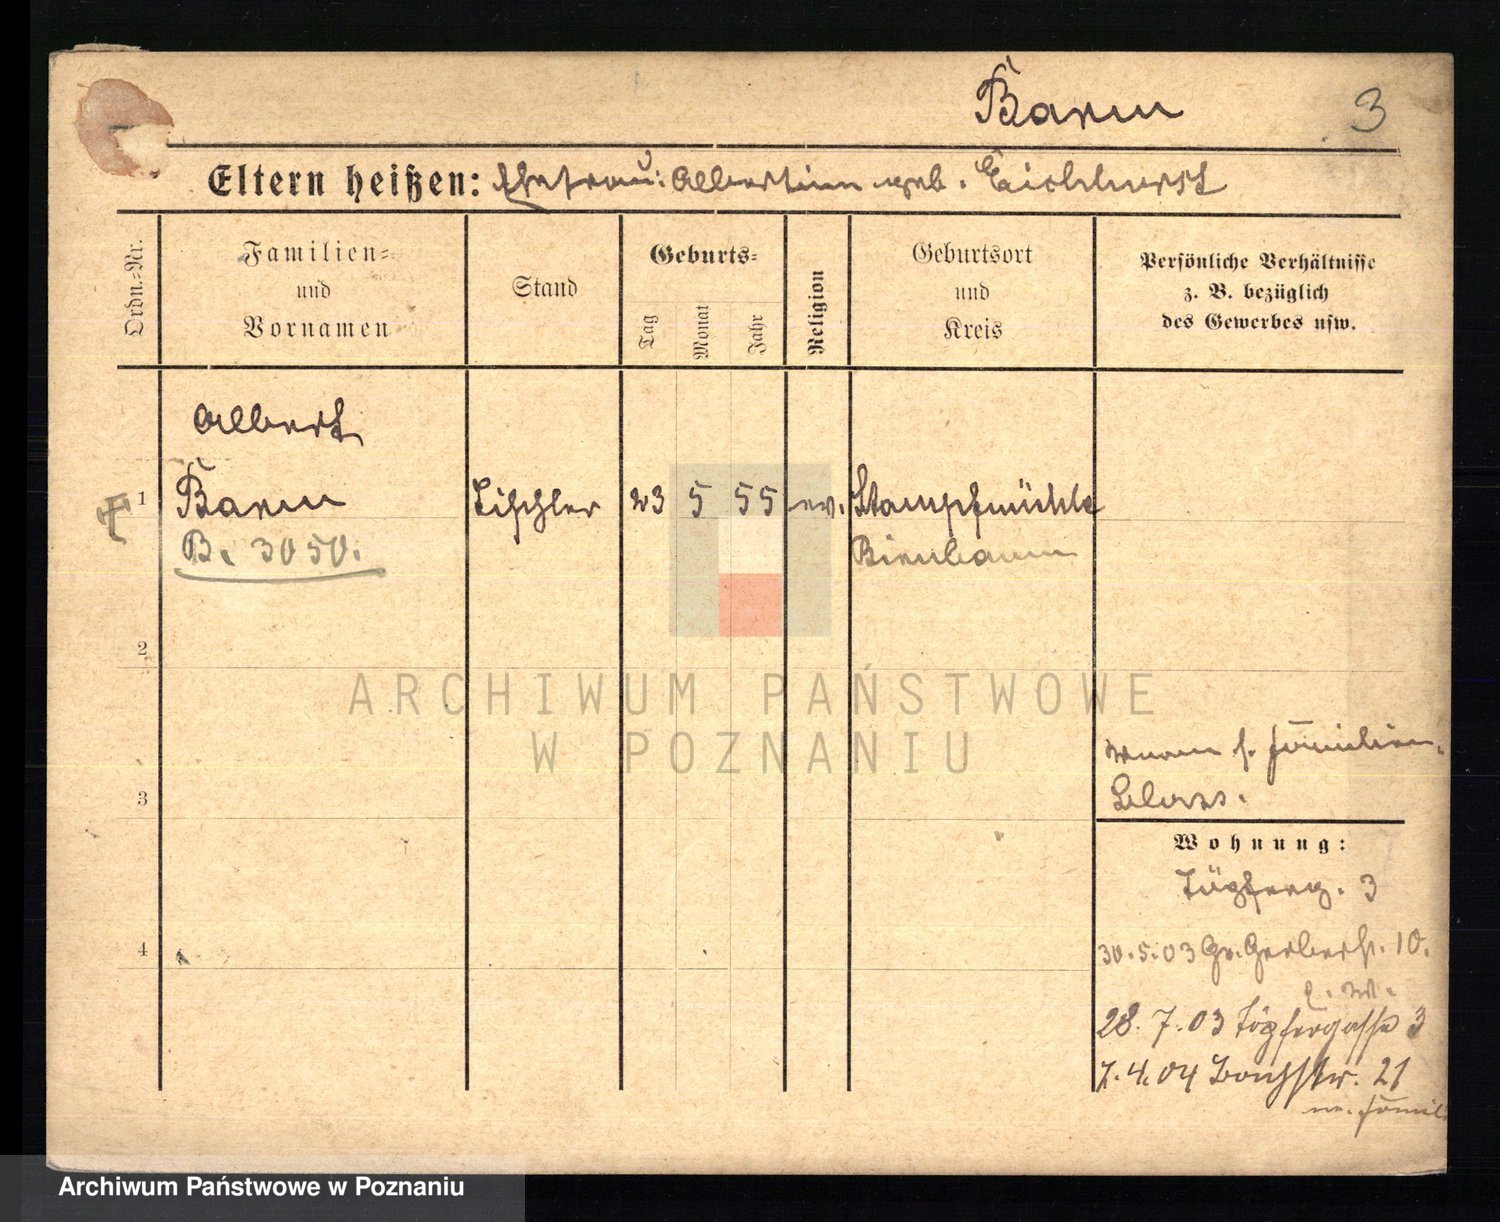 Barm
3
Eltern heißen: Ehefrau: Albertine geb. Eichhorst
Ordn.-Nr.
Familien-
und
Vornamen
Stand
Geburts-
Tag
Monat
Jahr
Religion
Geburtsort
und
Kreis
Persönliche Verhältnisse
z. B. bezüglich
des Gewerbes usw.
Albert
1
Tischler
23
5
55
ev.
Stampfmühle
B. 3050.
Birnbaum
2
ARCHIWUM PAŃSTWOWE
W POZNANIU
3
Wohnung:
4
30.5.03 Gr. Gerberstr. 10.
28.7.03 Töpfergasse 3
7.4.04
21
Archiwum Państwowe w Poznaniu